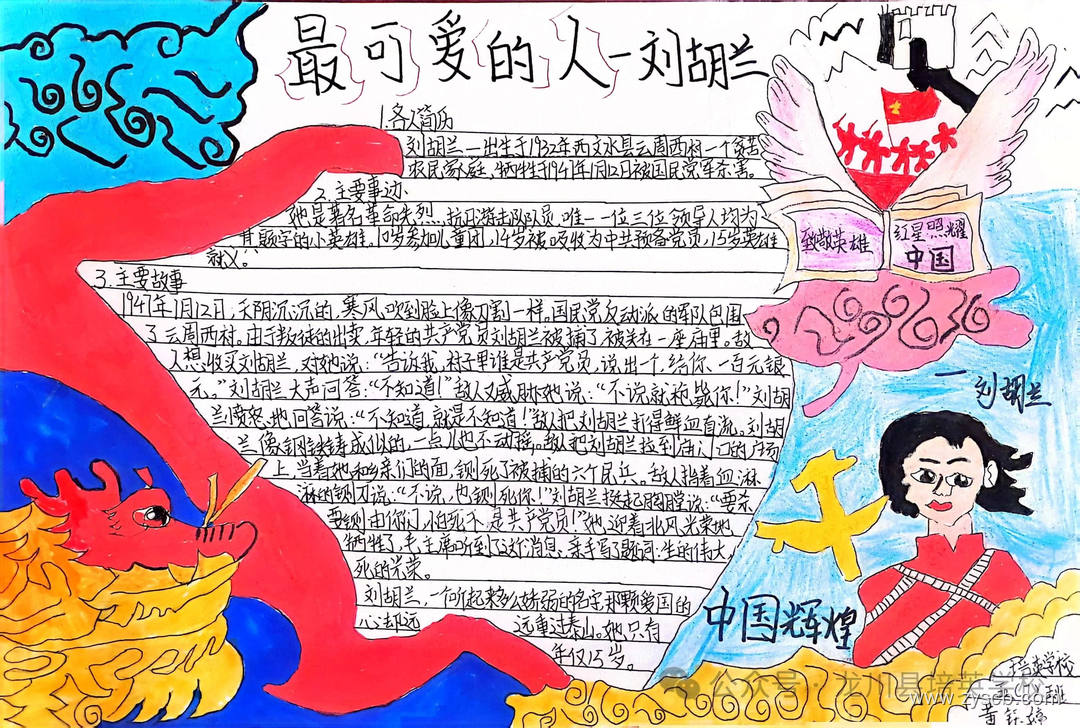 最可爱的人—刘胡兰
1.各人简历
刘胡兰一出生于1932年西文水县云周西村一个贫苦
农民家庭、牺牲于1947年1月12日被国民党军杀害。
2.主要事迹
她是著名革命先烈、抗日游击队队员、唯一一位三位领导人均为
其题字的小英雄。10岁参加儿童团,14岁被吸收为中共预备党员,15岁英雄
就义。
3.主要故事
1947年1月12日,天阴沉沉的,寒风吹到脸上像刀割一样。国民党反动派的军队包围
了云周西村。由于叛徒的出卖,年轻的共产党员刘胡兰被捕了被关在一座庙里。敌
人想收买刘胡兰,对她说:“告诉我,村子里谁是共产党员,说出个,给你一百元银
元。”刘胡兰大声回答:“不知道!”敌人又威胁她说:“不说就枪毙你!”刘胡
兰愤怒地回答说:“不知道,就是不知道!敌人把刘胡兰打得鲜血直流。刘胡
兰像钢铁铸成似的,一点儿也不动摇。敌人把刘胡兰拉到庙门口的广场
上当着她和乡亲们的面,铡死了被捕的六个民兵。敌人指着血淋
淋的铡刀说:“不说,也铡死你!”刘胡兰挺起胸膛说:“要杀
要铡由你们,怕死不是共产党员!”她迎着北风光荣地
牺牲了,毛主席听到了这个消息、亲手写了题词:生的伟大,
死的光荣。
刘胡兰,一个听起来多么娇弱的名字那颗爱国的
心却远 远重过泰山。她只有
年仅15岁。
致敬英雄
红星照耀
中国
一刘胡兰
中国辉煌
培英学校
班
公众号·龙川县培英学校
www.zyscb.com